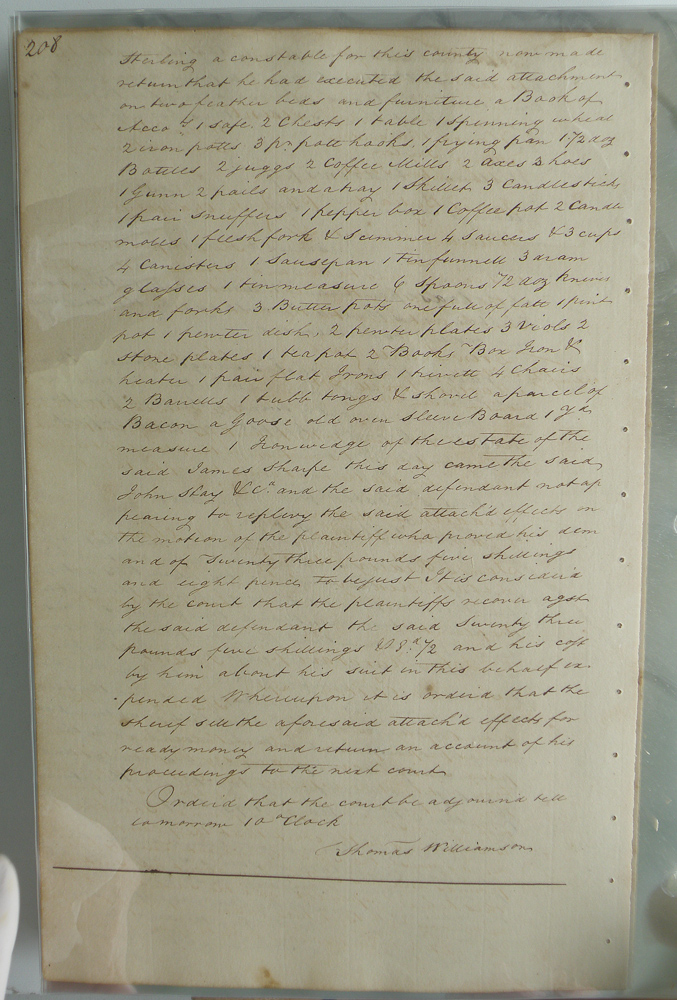 208
Sterling a constable for this county now made
return that he had executed the said attachment
on two feather beds and furniture a Book of
Acco.ts 1 safe 2 Chests 1 table 1 Spinning wheal
2 iron potts 3 pr. pott hooks, 1 frying pan 1 1/2 doz
Bottles 2 juggs 2 Coffee Mills 2 axes 3 hoes
1 Gunn 2 pails and a tray 1 Skillet 3 Candlesticks
1 pair Snuffers 1 pepper box 1 Coffee pot 2 Candle
moles 1 flesh fork & Scummer 4 Saucers & 3 cups
4 Canisters 1 Sausepan 1 tin funnell 3 dram
glasses 1 tin measure 6 Spoons 1/2 doz knives
and forks 3 Butter pots one full of fatt 1 pint
pot 1 pewter dish, 2 pewter plates 3 Viols 2
stone plates 1 tea pot 2 Books Box Iron &
heater 1 pair flat Irons 1 trivett 4 Chairs
2 Barrells 1 tubb tongs & shovel a parcel of
Bacon a Goose old oven Sleeve Board 1 yd
measure 1 Iron wedge of the estate of the
said James Sharpe this day came the said
John Hay &Ca. and the said defendant not ap
pearing to replevy the said attach'd effects on
the motion of the plaintiff who proved his dem
and of Twenty three pounds five shillings
and eight pence to be just It is consider'd
by the court that the plaintiffs recover agst
the said defendant the said Twenty three
pounds five shillings & 8.d 1/2 and his cost
by him about his suit in this behalf ex-
pended Whereupon it is order'd that the
sherif sell the aforesaid attach'd effects for
ready money and return an account of his
proceedings to the next court
Order'd that the court be adjourn'd till
tomorrow 10 o Clock
Thomas Williamson